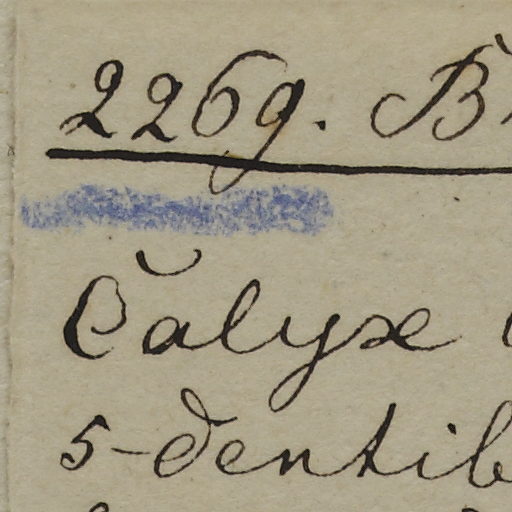 2269. B
Calyx
5-dentib